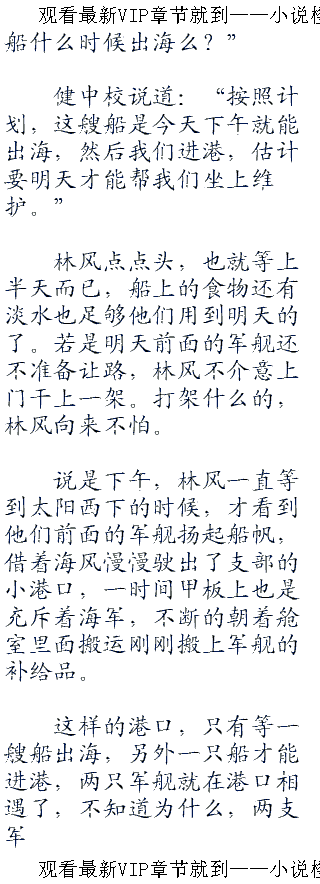 观看最新VIP章节就到——小说
船什么时候出海么？”
健中校说道：“按照计
划，这艘船是今天下午就能
出海，然后我们进港，估计
要明天才能帮我们坐上维
护。”
林风点点头，也就等上
半天而已，船上的食物还有
淡水也足够他们用到明天的
了。若是明天前面的军舰还
不准备让路，林风不介意上
门干上一架。打架什么的，
林风向来不怕。
说是下午，林风一直等
到太阳西下的时候，才看到
他们前面的军舰扬起船帆，
借着海风慢慢驶出了支部的
小港口，一时间甲板上也是
充斥着海军，不断的朝着舱
室里面搬运刚刚搬上军舰的
补给品。
这样的港口，只有等一
艘船出海，另外一只船才能
进港，两只军舰就在港口相
遇了，不知道为什么，两支
军
观看最新VIP章节就到——小说